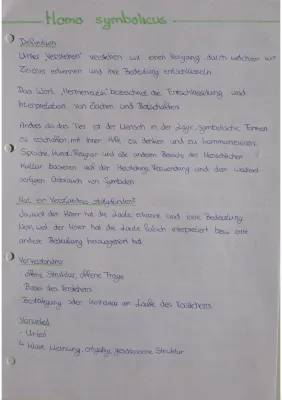 Homo symbolicus
Definition
Unter "Verstehen" verstehen wir einen Vorgang, durch welchen wir
Zeichen erkennen und ihre Bedeutung entschlüsseln
Das Wort "Hermeneutik" bezeichnet die Entschlüsselung und
Interpretation von Zeichen und Botschaften
Anders als das Tier ist der Mensch in der Lage, symbolische Formen
zu erschaffen mit ihrer Hilfe zu denken und zu kommunizieren.
Sprache, Kunst, Religion und alle anderen Bereiche der Menschlichen
Kultur basieren auf der Herstellung, Verwendung und dem
Gebrauch von Symbolen
Hat ein Verständnis stattgefunden?
Ja, weil der Hörer hat die Laute erkannt und ihre Bedeutung
Nein, weil der Hörer hat die Laute falsch interpretiert bzw. eine
andere Bedeutung
Vorverständnis
- offene Struktur, offene Frage
- Basis des Verstehens
- Bestätigung oder Korrektur im Laufe des Verstehens
Vorurteil
- Urteil
↳ klare Meinung, geschlossene Struktur